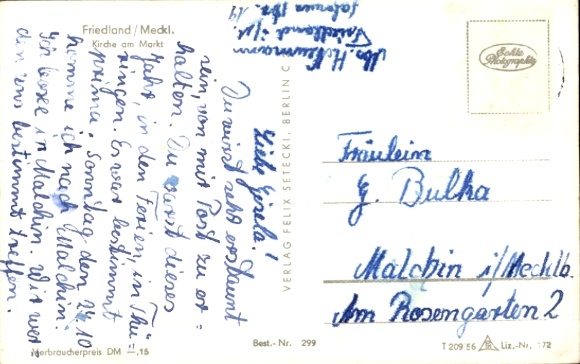 Friedland / Meckl.
Kirche am Markt
Liebe Gisela!
Du wirst sehr erstaunt
sein, von mir Post zu er-
halten. Du warst dieses
Jahr, in den Ferien, in Thü-
ringen. Es war bestimmt
prima. Sonntag den 24.10
komme ich nach Malchin.
Ich bleibe in Malchin. Wir wer
den uns bestimmt treffen.
Friedland i/M.
Echte Photographie
Fräulein
G. Bulka
Malchin i/Mecklb.
Am Rosengarten 2
VERLAG FELIX SETECKI, BERLIN C
Verbraucherpreis DM —,15
Best.-Nr. 299
T 209 56 Liz.-Nr. 172